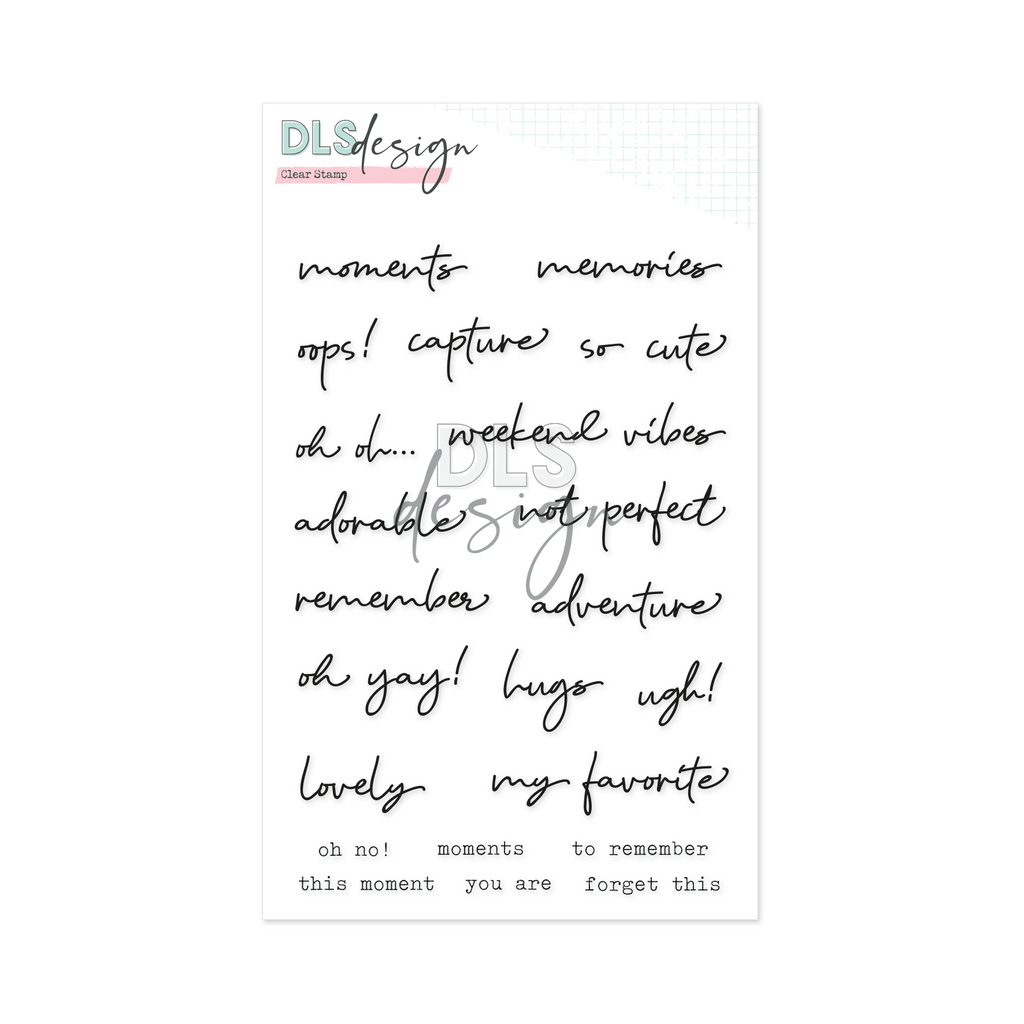 DLS design
Clear Stamp
moments memories
oops! capture so cute
oh oh... weekend vibes
DLS
design
adorable not perfect
remember adventure
oh yay! hugs ugh!
lovely my favorite
oh no! moments to remember
this moment you are forget this